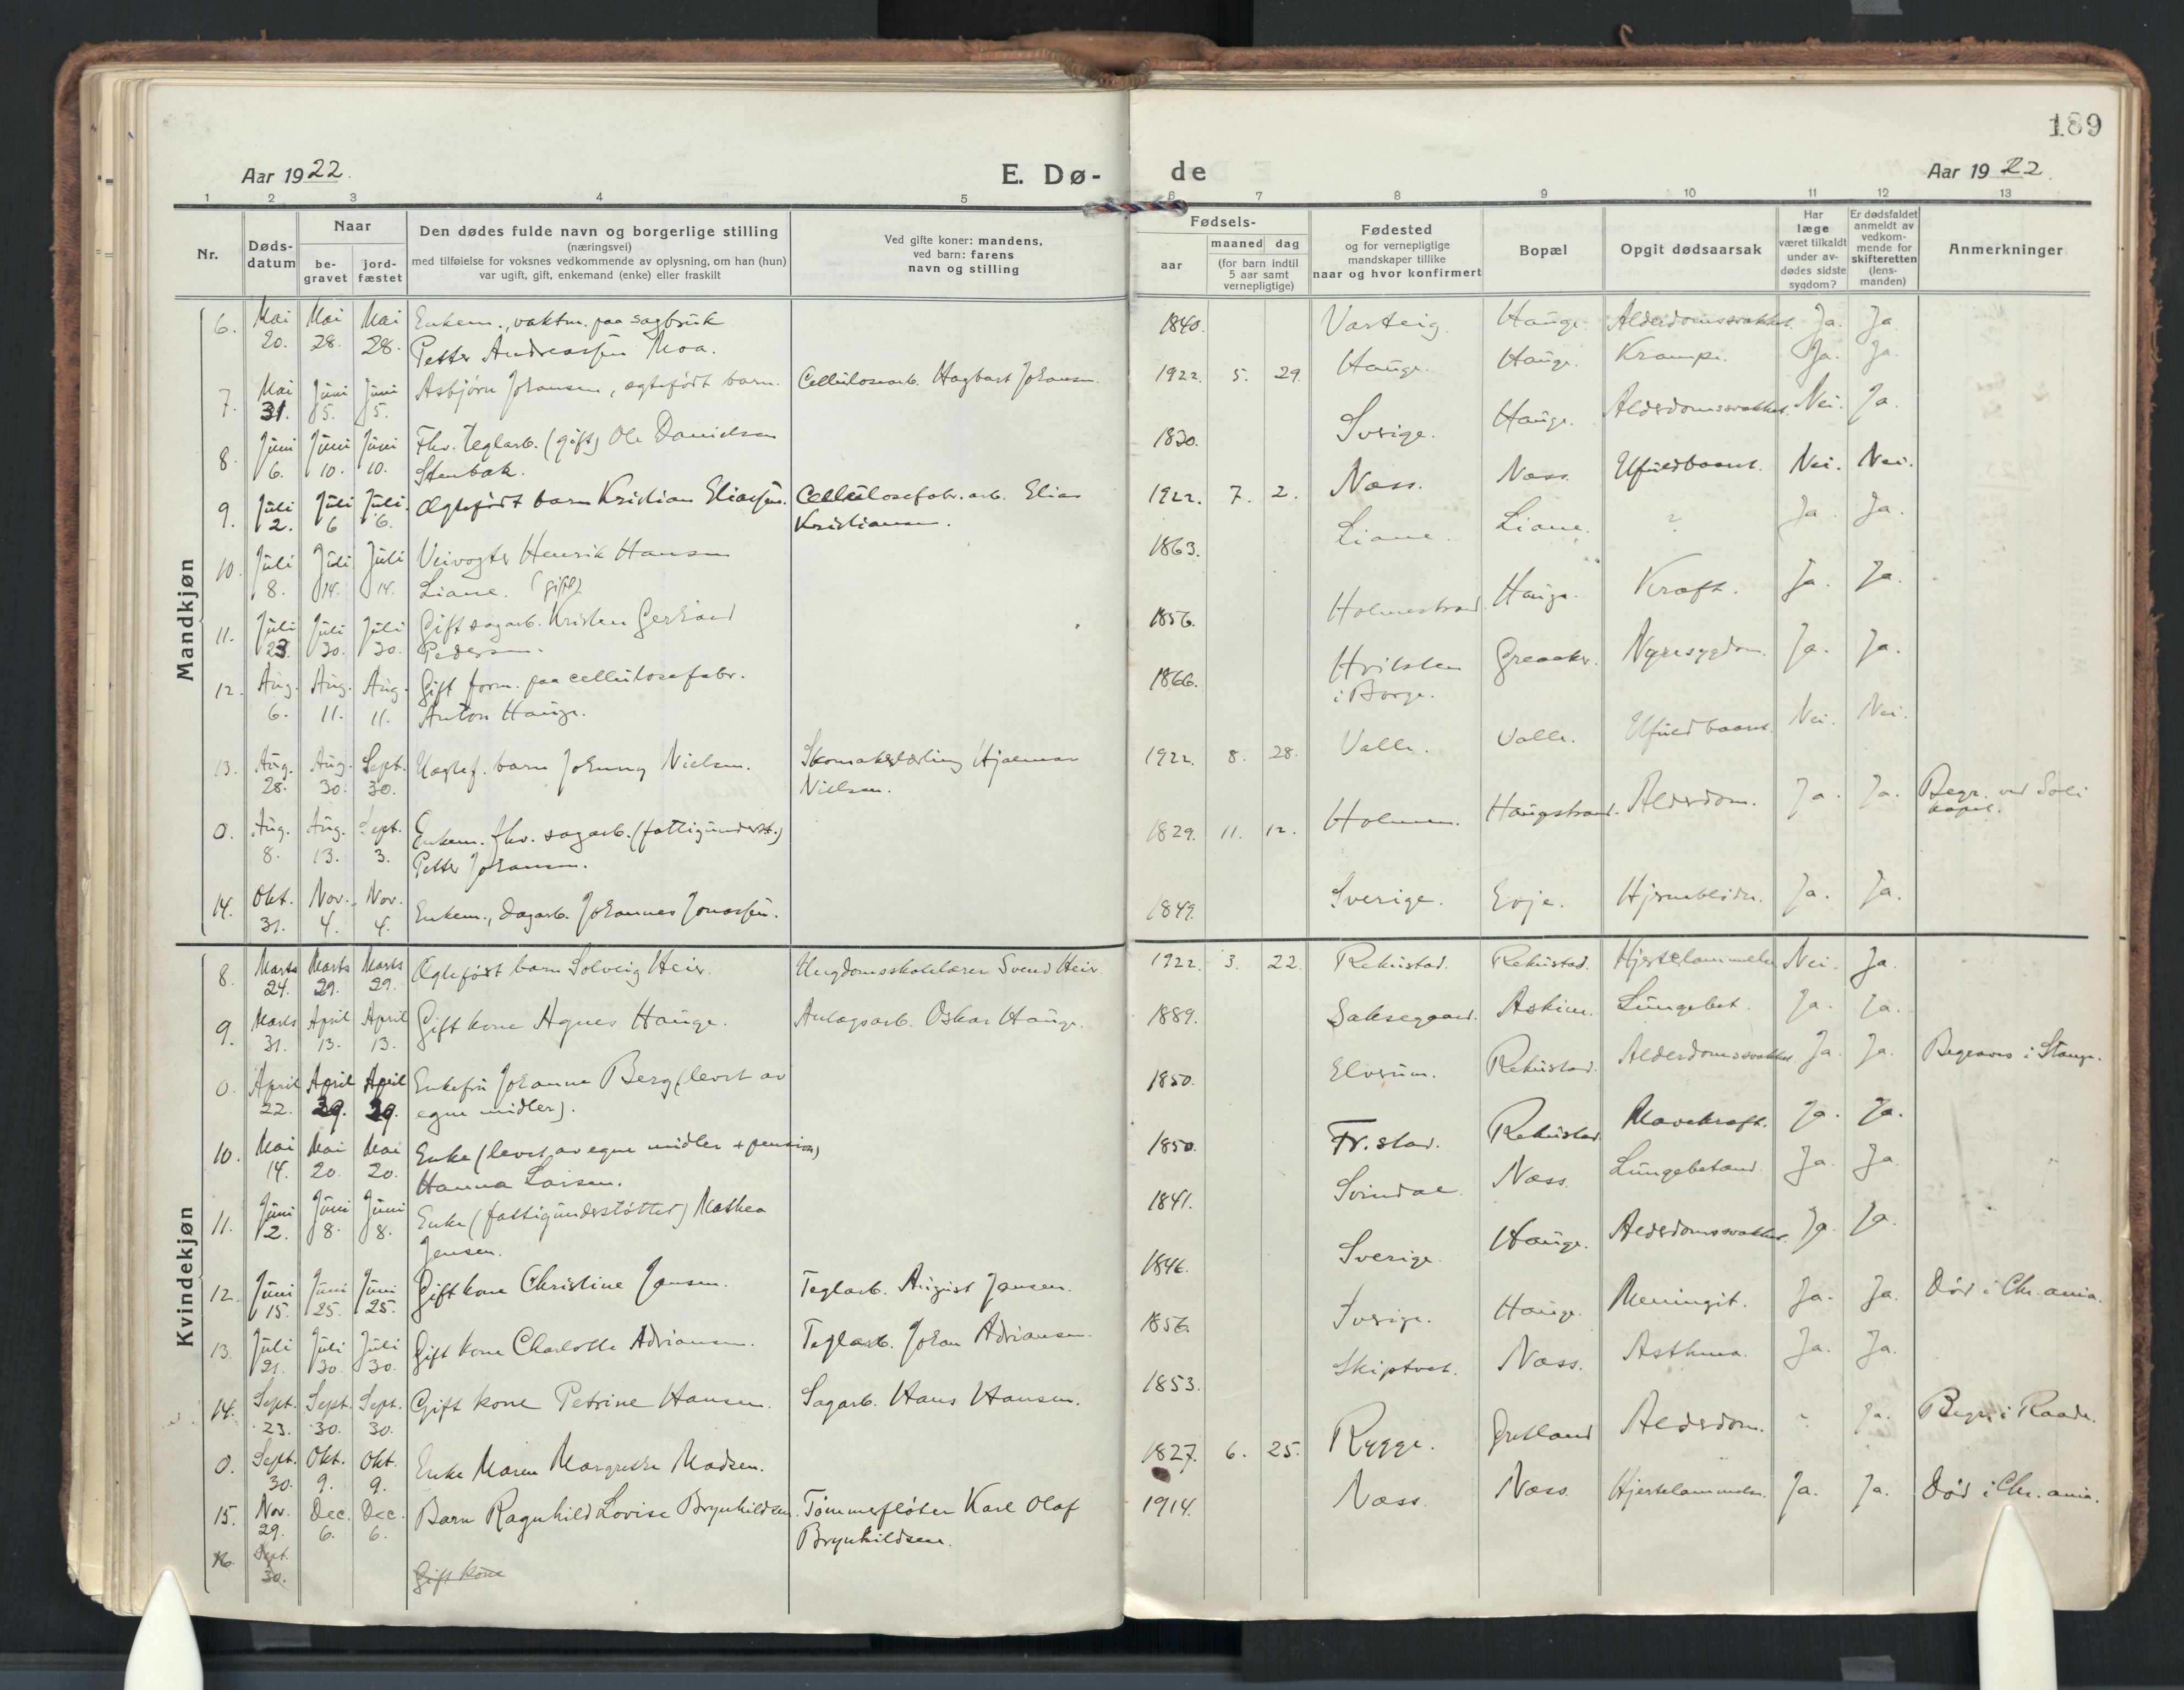 189
Aar 1922.
E. Dø-
de
Aar 1922.
1 2 3 4 5 6 7 8 9 10 11 12 13
Nr.
Døds-
datum
Naar
be-
gravet
jord-
fæstet
Den dødes fulde navn og borgerlige stilling
(næringsvei)
med tilføielse for voksnes vedkommende av oplysning, om han (hun)
var ugift, gift, enkemand (enke) eller fraskilt
Ved gifte koner: mandens,
ved barn: farens
navn og stilling
Fødsels-
aar
maaned dag
(for barn indtil
5 aar samt
vernepligtige)
Fødested
og for vernepligtige
mandskaper tillike
naar og hvor konfirmert
Bopæl
Opgit dødsaarsak
Har
læge
været tilkaldt
under av-
dødes sidste
sygdom?
Er dødsfaldet
anmeldt av
vedkom-
mende for
skifteretten
(lens-
manden)
Anmerkninger
Mandkjøn
6. Mai 20. Mai 28. Mai 28. Enkem., vaktm. paa sagbruk
Petter Andreassen Moa. 1840. Varteig. Hauge. Alderdomssvakhet. Ja. Ja
7. Mai 31. Juni 5. Juni 5. Asbjørn Johansen, ægtefødt barn. Cellulosearb. Hagbart Johansen. 1922. 5. 29. Hauge. Hauge. Krampe. Ja. Ja
8. Juni 6. Juni 10. Juni 10. Fhv. Teglarb. (gift) Ole Danielsen
Stenbæk. 1830. Sverige. Hauge. Alderdomssvakhet. Nei. Ja.
9. Juli 2. Juli 6 Juli 6. Ægtefødt barn Kristian Eliassen. Cellulosefabr. arb. Elias
Kristiansen. 1922. 7. 2. Næss. Næss. Ufuldbaaret. Nei. Nei.
10. Juli 8. Juli 14. Juli 14. Veivogter Henrik Hansen
Liane. (gift) 1863. Liane. Liane. ? Ja. Ja.
11. Juli 23. Juli 30. Juli 30. Gift sagarb. Kristen Gerhard
Pedersen. 1856. Holmestrand. Hauge. Kræft. Ja. Ja.
12. Aug. 6. Aug. 11. Aug. 11. Gift form. paa cellulosefabr.
Anton Hauge. 1866. Hvitsten
i Borge. Greaaker. Nyresygdom. Ja. Ja.
13. Aug. 28. Aug. 30. Sept. 30. Uægtef. barn Johnny Nielsen. Skomakerlærling Hjalmar
Nielsen. 1922. 8. 28. Valle. Valle. Ufuldbaaret. Nei. Nei.
0. Aug. 8. Aug. 13. Sept. 3. Enkem. fhv. sagarb. (fattigunderst.)
Petter Johansen. 1829. 11. 12. Holmen. Haugstrand. Alderdom. Ja. Ja. Begr. ved Soli
kapel.
14. Okt. 31. Nov. 4. Nov. 4. Enkem., dagarb. Johannes Jonassen. 1849. Sverige. Evje. Hjerneblødn. Ja. Ja.
Kvindekjøn
8. Marts 24. Marts 29. Marts 29. Ægtefødt barn Solveig Heir. Ungdomsskolelærer Svend Heir. 1922. 3. 22. Rekustad. Rekustad. Hjertelammelse Nei. Ja.
9. Marts 31. April 13. April 13. Gift kone Agnes Hauge. Anlægsarb. Oskar Hauge. 1889. Saksegaard. Askim. Lungebet. Ja. Ja.
0. April 22. April 29. April 29. Enkefru Johanne Berg (levet av
egne midler). 1850. Elverum. Rekustad. Alderdomssvakhet Ja. Ja. Begraves i Stange.
10. Mai 14. Mai 20. Mai 20. Enke (levet av egne midler + pension)
Hanna Larsen. 1850. Fr.stad. Rekustad. Mavekræft. Ja. Ja.
11. Juni 2. Juni 8. Juni 8. Enke (fattigunderstøttet) Mathea
Jensen. 1841. Svindal. Næss. Lungebetænd. Ja. Ja.
12. Juni 15. Juni 25. Juni 25. Gift kone Christine Jansen. Teglarb. August Jansen. 1846. Sverige. Hauge. Alderdomssvakhet. Ja. Ja.
13. Juli 21. Juli 30. Juli 30. Gift kone Charlotte Adriansen. Teglarb. Johan Adriansen. 1856. Sverige. Hauge. Meningit. Ja. Ja. Død i Chr.ania.
14. Sept. 23. Sept. 30. Sept. 30. Gift kone Petrine Hansen. Sagarb. Hans Hansen. 1853. Skiptvet. Næss. Asthma. Ja. Ja.
0. Sept. 30. Okt. 9. Okt. 9. Enke Maren Margrethe Madsen. 1827. 6. 25. Rygge. Alderdom. Ja. Begr. i Raade.
15. Nov. 29. Dec. 6. Dec. 6. Barn Ragnhild Lovise Brynhildsen. Tømmerfløter Karl Olaf
Brynhildsen. 1914. Næss. Næss. Hjertelammelse. Ja. Ja. Død i Chr.ania.
16. Sept. 30. Gift kone